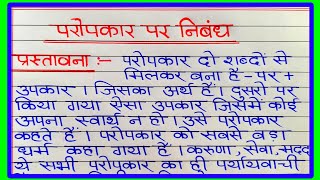 परोपकार पर निबंध
प्रस्तावना :- परोपकार दो शब्दों से
मिलकर बना है - पर +
उपकार । जिसका अर्थ है । दूसरों पर
किया गया ऐसा उपकार जिसमें कोई
अपना स्वार्थ न हो । उसे परोपकार
कहते हैं । परोपकार को सबसे बड़ा
धर्म कहा गया है । करुणा, सेवा, मदद
ये सभी परोपकार का ही पर्यायवाची